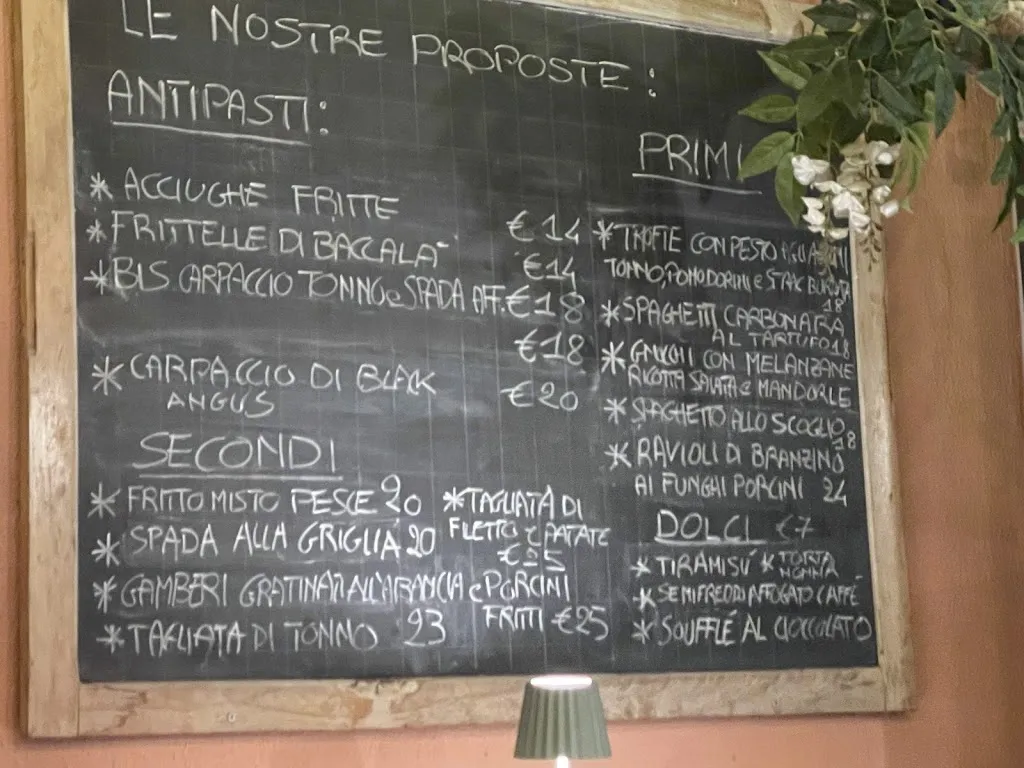 LE NOSTRE PROPOSTE:
ANTIPASTI:
* ACCIUGHE FRITTE €14
* FRITTELLE DI BACCALÀ €14
* BIS CARPACCIO TONNO e SPADA AFF. €18
€18
* CARPACCIO DI BLACK €20
ANGUS
SECONDI
* FRITTO MISTO PESCE 20
* SPADA ALLA GRIGLIA 20
* GAMBERI GRATINATI ALL'ARANCIA
* TAGLIATA DI TONNO 23
* TAGLIATA DI
FILETTO e PATATE
€25
e PORCINI
FRITTI €25
PRIMI
* TROFIE CON PESTO
TONNO, POMODORINI e STRAC. BURRATA
18
* SPAGHETTI CARBONARA
AL TARTUFO 18
* GNOCCHI CON MELANZANE
RICOTTA SALATA e MANDORLE
* SPAGHETTO ALLO SCOGLIO
18
* RAVIOLI DI BRANZINO
AI FUNGHI PORCINI 24
DOLCI €7
* TIRAMISÚ * TORTA
NONNA
* SEMIFREDDI AFFOGATO CAFFÉ
* SOUFFLÉ AL CIOCCOLATO